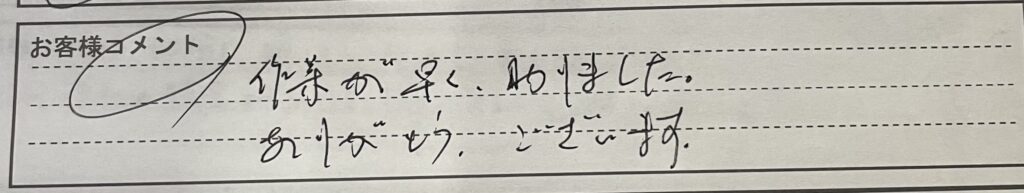 お客様コメント
作業が早く、助りました。
ありがとう、ございます。